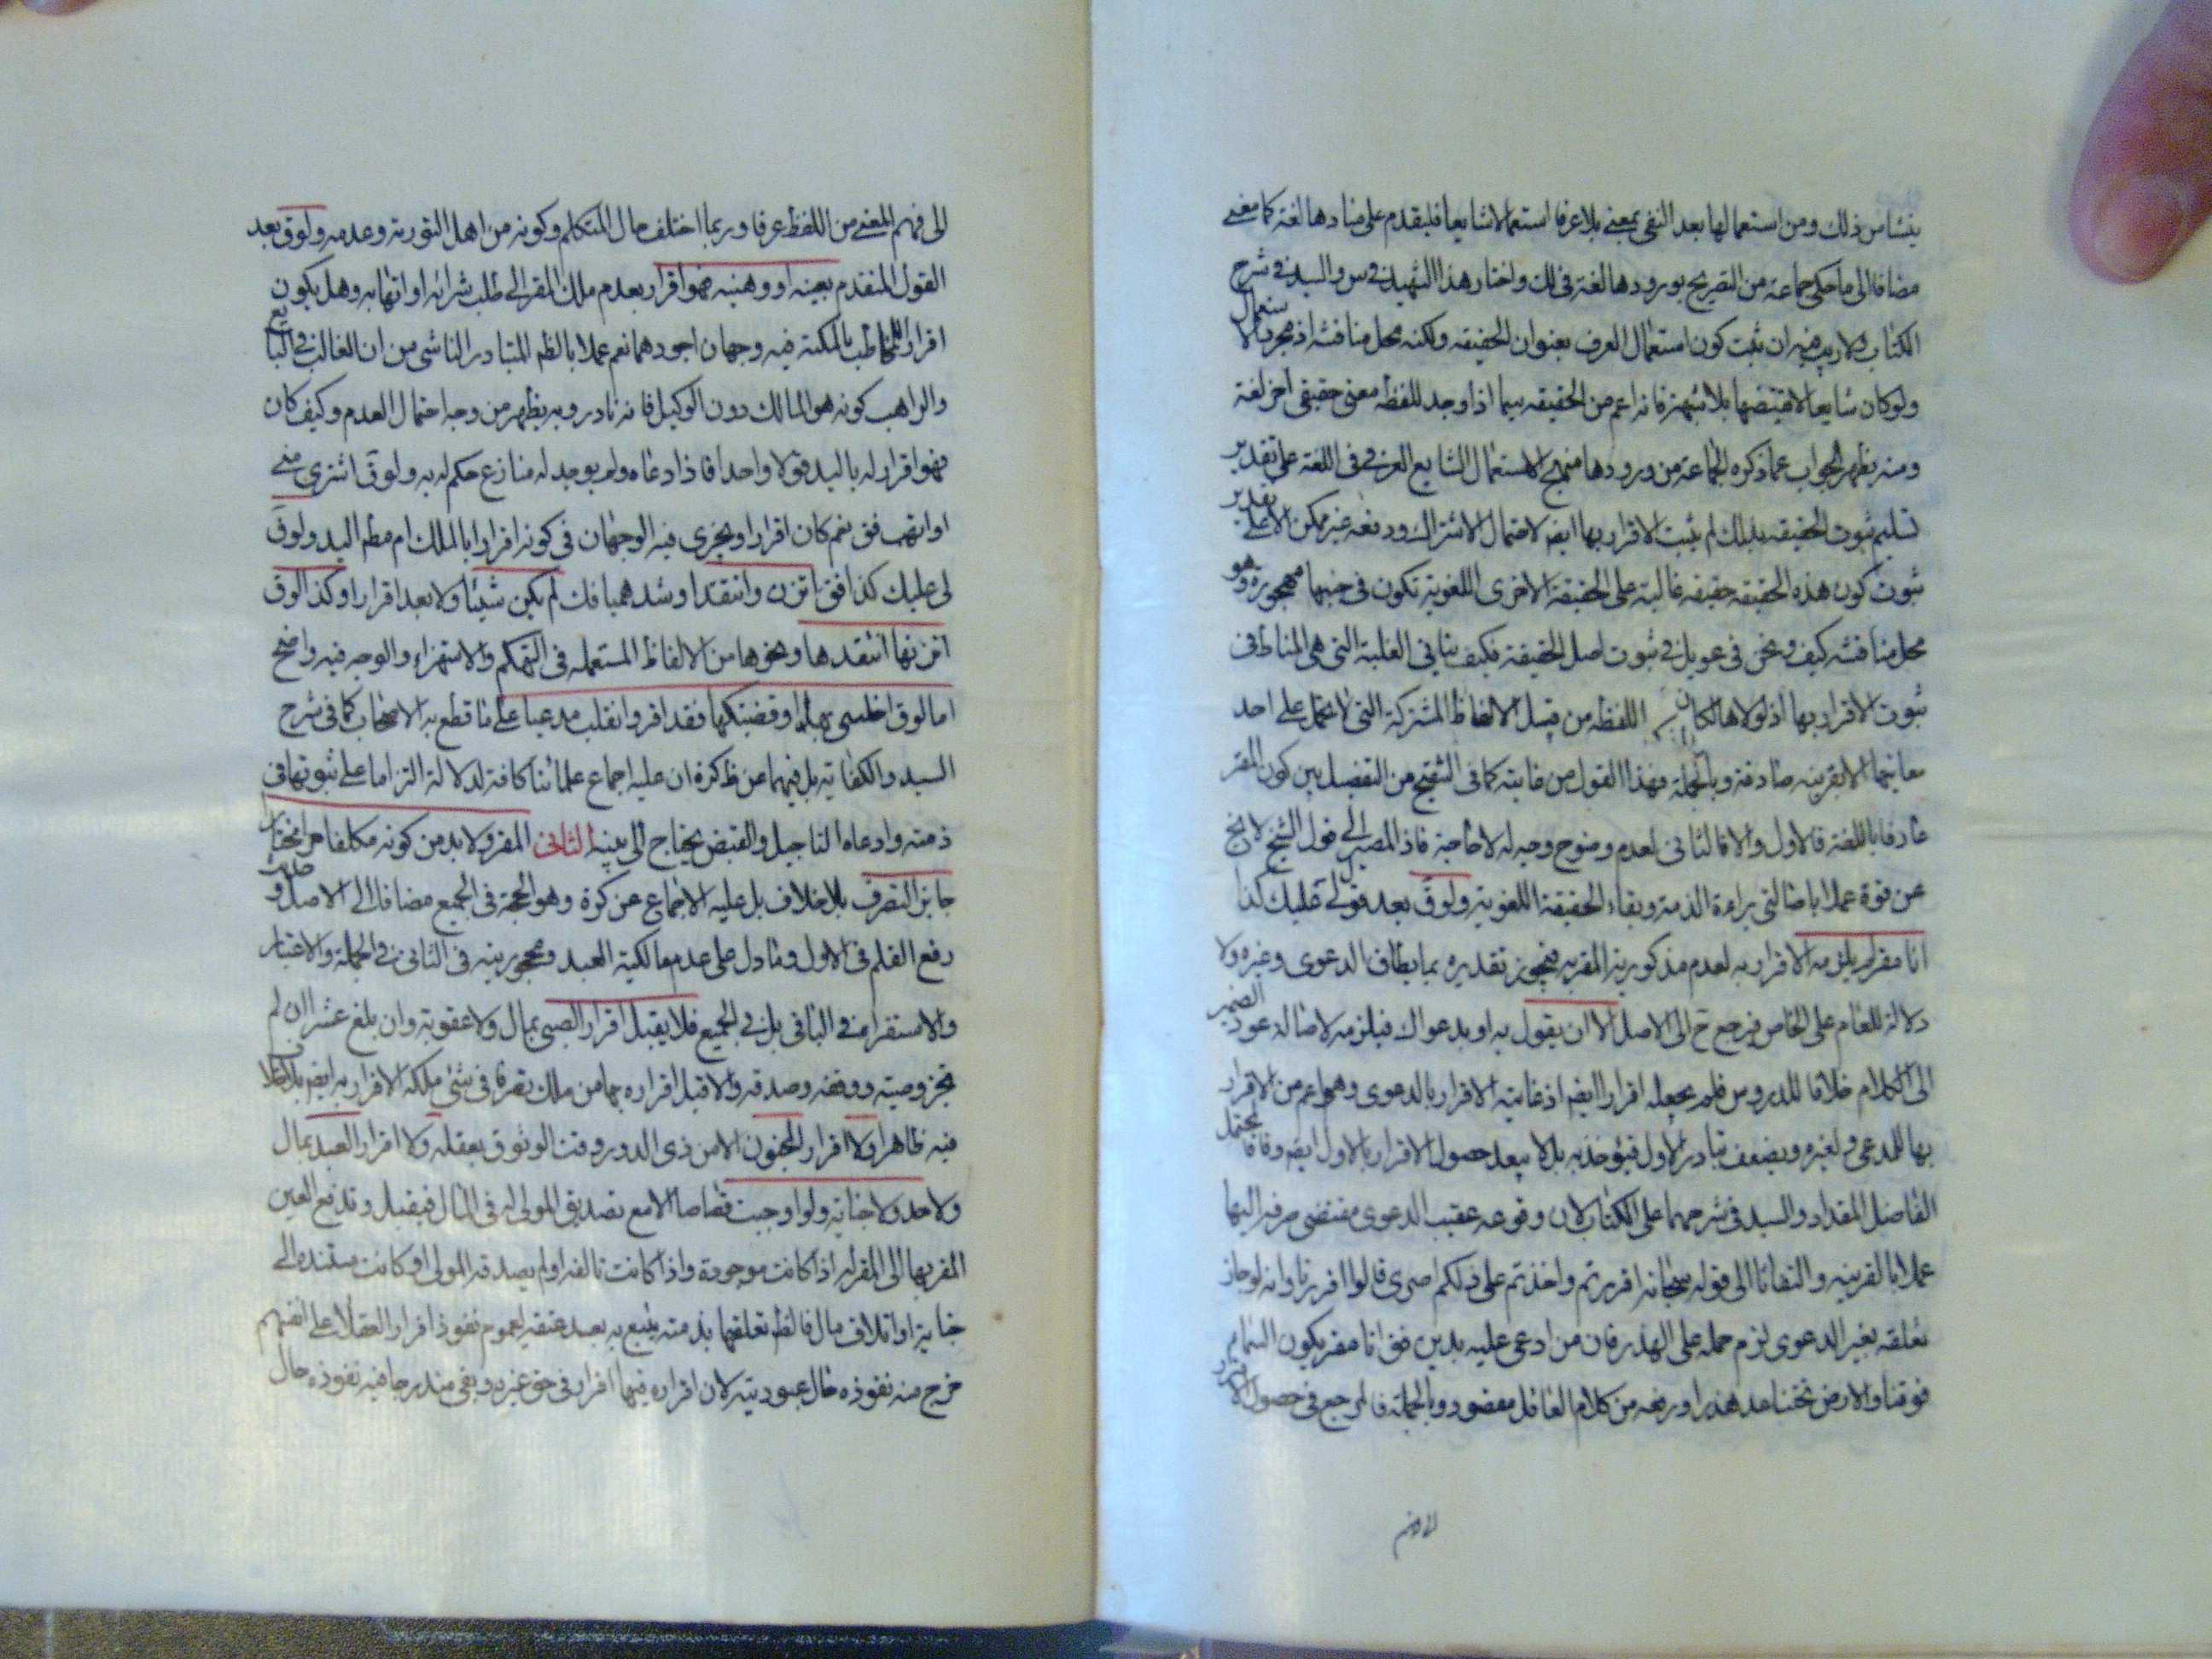 ينشا من ذلك ومن استعمالها بعد النفى بمعنى بلا عرفا استعمالا شايعا فليقدم على مفادها لغة كما مضى
مضافا الى ما حكى جماعة من التصريح بورودها لغة فى ذلك واختار هذا الشهيد فى س والسيد فى شرح
الكتاب ولا ريب فيه ان ثبت كون استعمال العرف بعنوان الحقيقه ولكنه محل مناقشه اذ مجرد الاستعمال
ولو كان شايعا لا يقتضيها بلا شبهة فانه اعم من الحقيقه سيما اذا وجد للفظه معنى حقيقى اخر لغة
ومنه يظهر الجواب عما ذكره الجماعة من ورودها منهج الاستعمال الشايع العرفى فى اللغة على تقدير
تسليم ثبوت الحقيقه بذلك لم يثبت الاقرار بها ايضا لاحتمال الاشتراك ودفعه غير ممكن الا على تقدير
ثبوت كون هذه الحقيقه حقيقه غالبة على الحقيقة الاخرى اللغوية تكون فى جنبها مهجورة وهو
محل مناقشه كيف ونحن فى عويل فى ثبوت اصل الحقيقة فكيف يتاتى الغلبة التى هى المناط فى
ثبوت الاقرار بها اذ لولاها لكان اللفظه من قبيل الالفاظ المشتركة التى لا تحمل على احد
معانيها الا بقرينه صادفة وبالجملة فهذا القول من غايته كما فى التنقيح من التفصيل بين كون المقر
عارفا باللغة فالاول والا فالثانى لعدم وضوح وجه له لا حاجة فاذا المصير الى قول الشيخ لا يخ
عن قوة عملا باصالتى براءة الذمة وبقاء الحقيقة اللغوية ولو ق بعد قوله لى عليك كذا
انا مقر لم يلزمه الاقرار به لعدم مذكورية المقر به فيجوز تقديره بما يطابق الدعوى وغيره ولا
دلالة للعام على الخاص فيرجع ح الى الاصل الا ان يقول به او بدعواك فيلزمه لاصالة عود الضمير
الى الكلام خلافا للدروس فلم يجعله اقرارا ايضا اذ غايته الاقرار بالدعوى وهو اعم من الاقرار
بها للمدعى ولغيره ويضعف تبادر الاول فيؤخذ به بل لا يبعد حصول الاقرار بالاول ايضا وفاقا لمحتمل
الفاضل المقداد والسيد فى شرحهما على الكتاب لان وقوعه عقيب الدعوى مقتضى صرفه اليها
عملا بالقرينه والتفاتا الى قوله سبحانه اقررتم واخذتم على ذلكم اصرى قالوا اقررنا وانه لو جاز
تعلقه بغير الدعوى لزم حمله على الهذر فان من ادعى عليه بدين فق انا مقر بكون السماء
فوقنا والارض تحتنا عد هذرا ورفعه من كلام العاقل مقصود وبالجملة فالمرجع فى حصول الاقرار
الى فهم المعنى من اللفظ عرفا وربما اختلف حال المتكلم وكونه من اهل التورية وعدمه ولو ق بعد
القول المتقدم بعينه او وهبنيه فهو اقرار بعدم ملك المقر الى طلب شرائه او اتهابه وهل يكون
اقرارا للمخاطب بالملكية فيه وجهان اجودهما نعم عملا بالظهر المتبادر الناشى من ان الغالب فى البايع
والواهب كونه هو المالك دون الوكيل فانه نادر وبه يظهر من وجه احتمال العدم وكيف كان
فهو اقرار له باليد قولا واحدا فاذا ادعاه ولم يوجد له منازع حكم له به ولو ق اشترى منى
او اتهب فق نعم كان اقرارا ويجرى فيه الوجهان فى كونه اقرارا بالملك ام مطم اليد ولو ق
لى عليك كذا فق اتزن وانتقد او شد هميانك لم يكن شيئا ولا يعد اقرارا وكذا لو ق
اتزنها انتقدها ونحوها من الالفاظ المستعمله فى التهكم والاستهزاء والوجه فيه واضح
اما لو ق اجلتنى بها او قضيتكها فقد اقر وانقلب مدعيا على ما قطع به الاصحاب كما فى شرح
السيد والكفاية بل فيهما عن ظ كرة ان عليه اجماع علمائنا كافة لدلالة التزاما على ثبوتها فى
ذمته وادعاه التاجيل والقبض يحتاج الى بينة الثانى المقر ولا بد من كونه مكلفا حرا مختارا
جايز التصرف بلا خلاف بل عليه الاجماع عن كرة وهو الحجة فى الجميع مضافا الى الاصل وحديث
رفع القلم فى الاول وما دل على عدم مالكية العبد ومحجوريته فى الثانى فى الجملة والاعتبار
والاستقراء فى الباقى بل فى الجميع فلا يقبل اقرار الصبى بمال ولا عقوبة وان بلغ عشرا ان لم
تجز وصيته ووقفه وصدقه والا قبل اقراره بها من ملك تصرفا فى شئى ملكه الاقرار به ايضا بلا خلاف
فيه ظاهرا ولا اقرار المجنون الا من ذى الدور وقت الوثوق بعقله ولا اقرار العبد بمال
ولا حد ولا جناية ولو اوجبت قصاصا الا مع تصديق المولى له فى المال فيقبل وتدفع العين
المقر بها الى المقر له اذا كانت موجودة واذا كانت تالفه او لم يصدقه المولى او كانت مستنده الى
جناية او اتلاف مال فالظ تعلقها بذمته يتبع به بعد عتقه لعموم نفوذ اقرار العقلاء على انفسهم
خرج منه نفوذه حال عبوديته لان اقراره فيها اقرار فى حق غيره وبقى مندرجا فيه نفوذه حال